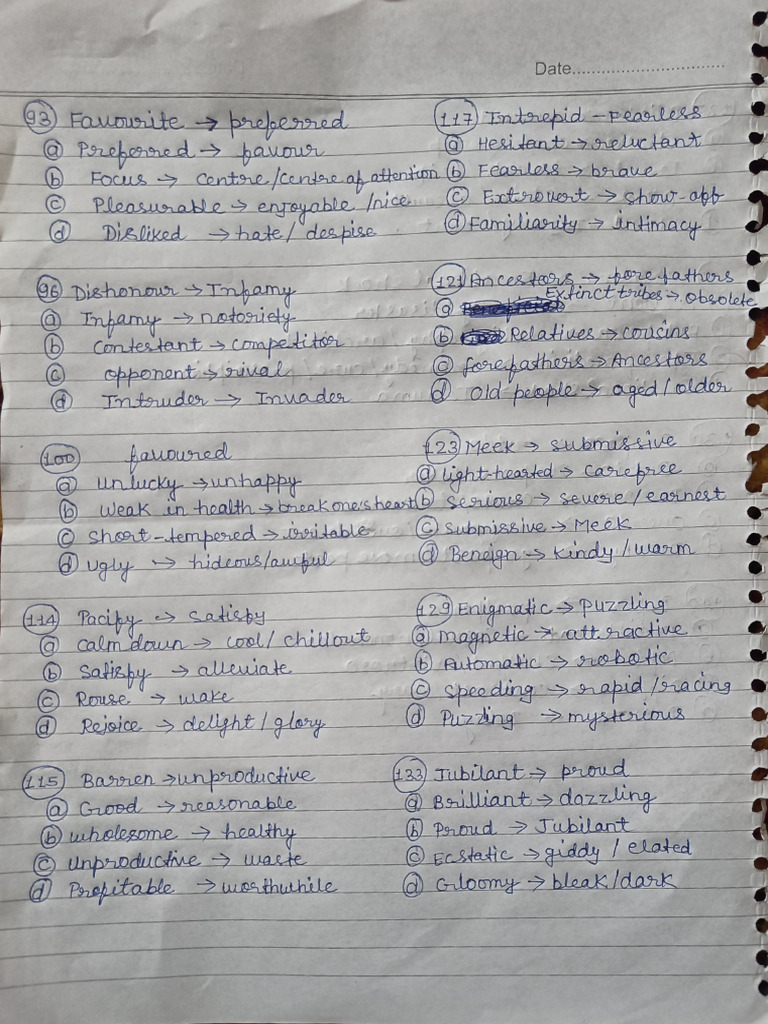 Date..............................
93 Favourite → preferred
a Preferred → favour
b Focus → centre/centre of attention
c Pleasurable → enjoyable /nice
d Disliked → hate/ despise
96 Dishonour → Infamy
a Infamy → notoriety
b contestant → competitor
c opponent → rival
d Intruder → Invader
100 favoured
a unlucky → unhappy
b weak in health → break one's heart
c short-tempered → irritable
d ugly → hideous/awful
114 Pacify → satisfy
a calm down → cool/ chillout
b satisfy → alleviate
c Rouse → wake
d Rejoice → delight / glory
115 Barren → unproductive
a Good → reasonable
b wholesome → healthy
c unproductive → waste
d Profitable → worthwhile
117 Intrepid - Fearless
a Hesitant → reluctant
b Fearless → brave
c Extrovert → show-off
d Familiarity → intimacy
121 Ancestors → forefathers
a Extinct tribes → obsolete
b Relatives → cousins
c forefathers → Ancestors
d old people → aged / older
123 Meek → submissive
a light-hearted → carefree
b serious → severe / earnest
c submissive → Meek
d Beneign → kindy / warm
129 Enigmatic → puzzling
a magnetic → attractive
b Automatic → robotic
c speeding → rapid /racing
d Puzzling → mysterious
133 Jubilant → proud
a Brilliant → dazzling
b Proud → Jubilant
c Ecstatic → giddy / elated
d Gloomy → bleak/dark